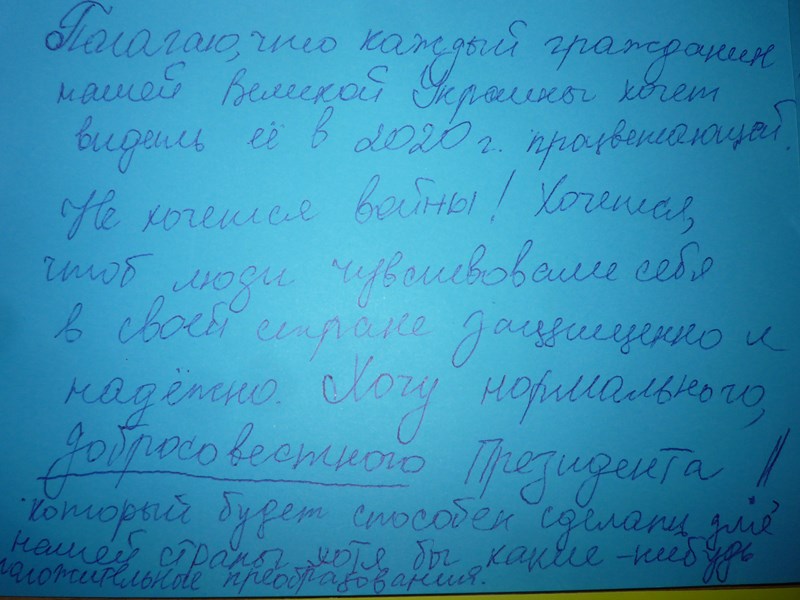 Полагаю, что каждый гражданин
нашей Великой Украины хочет
видеть её в 2020 г. процветающей.
Не хочется войны! Хочется,
чтоб люди чувствовали себя
в своей стране защищенно и
надёжно. Хочу нормального,
добросовестного Президента !!
который будет способен сделать для
нашей страны хотя бы какие-нибудь
положительное преобразования.